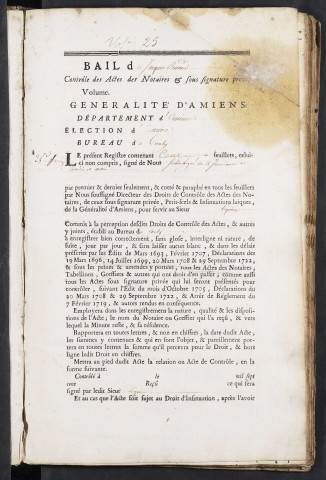 BAIL d
Contrôle des Actes des Notaires & sous signature privée
Volume.
GENERALITÉ D'AMIENS
DÉPARTEMENT d'
ÉLECTION d'
BUREAU d
LE présent Registre contenant feuillets, celui-
ci non compris, signé de Nous
par premier & dernier feuillement, & cotté & paraphé en tous les feuillets
par Nous soussigné Directeur des Droits de Contrôle des Actes des No-
taires, de ceux sous signature privée, Petit-scels & Insinuations laïques,
de la Généralité d'Amiens, pour servir au Sieur
Commis à la perception desdits Droits de Contrôle des Actes, & autres
y joints, établi au Bureau d
à enregistrer bien correctement, sans glose, interligne ni rature, de
suite, jour par jour, & sans laisser aucun blanc, & dans les délais
prescrits par les Édits de Mars 1693, Février 1707, Déclarations du
19 Mars 1696, 14 Juillet 1699, 20 Mars 1708 & 29 Septembre 1722,
& sous les peines & amendes y portées, tous les Actes des Notaires,
Tabellions, Greffiers & autres qui ont droit d'en passer; comme aussi
tous les Actes sous signature privée qui lui seront présentés pour
contrôler, suivant l'Édit du mois d'Octobre 1705, Déclarations du
20 Mars 1708 & 29 Septembre 1722, & Arrêt de Réglement du
7 Février 1719, & autres rendus en conséquence.
Employera dans les enregistremens la nature, qualité & les disposi-
tions de l'Acte; le nom du Notaire ou Greffier qui l'a reçû, & vers
lequel la Minute reste, & sa résidence.
Rapportera en toutes lettres, & non en chiffres, la date dudit Acte,
les sommes y contenues & qui en sont l'objet, & pareillement porte-
ra en toutes lettres la somme qu'il percevra pour le Droit, & hors
ligne ledit Droit en chiffres.
Mettra au pied dudit Acte la relation ou Acte de Contrôle, en la
forme suivante.
Contrôlé à le mil sept
cent Reçû ce qui sera
signé par ledit Sieur
Et au cas que l'Acte soit sujet au Droit d'Insinuation, après l'avoir